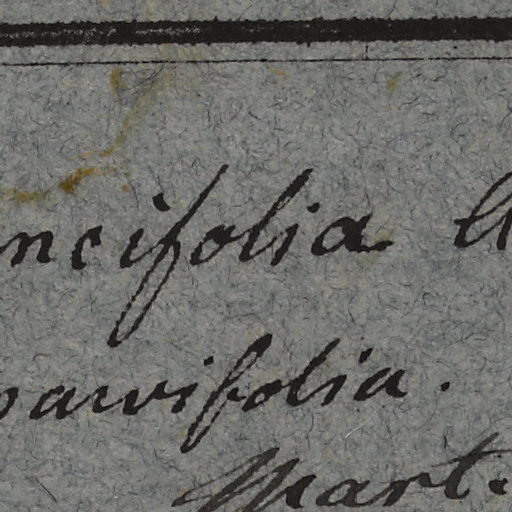 ncifolia
parvifolia.
Mart.